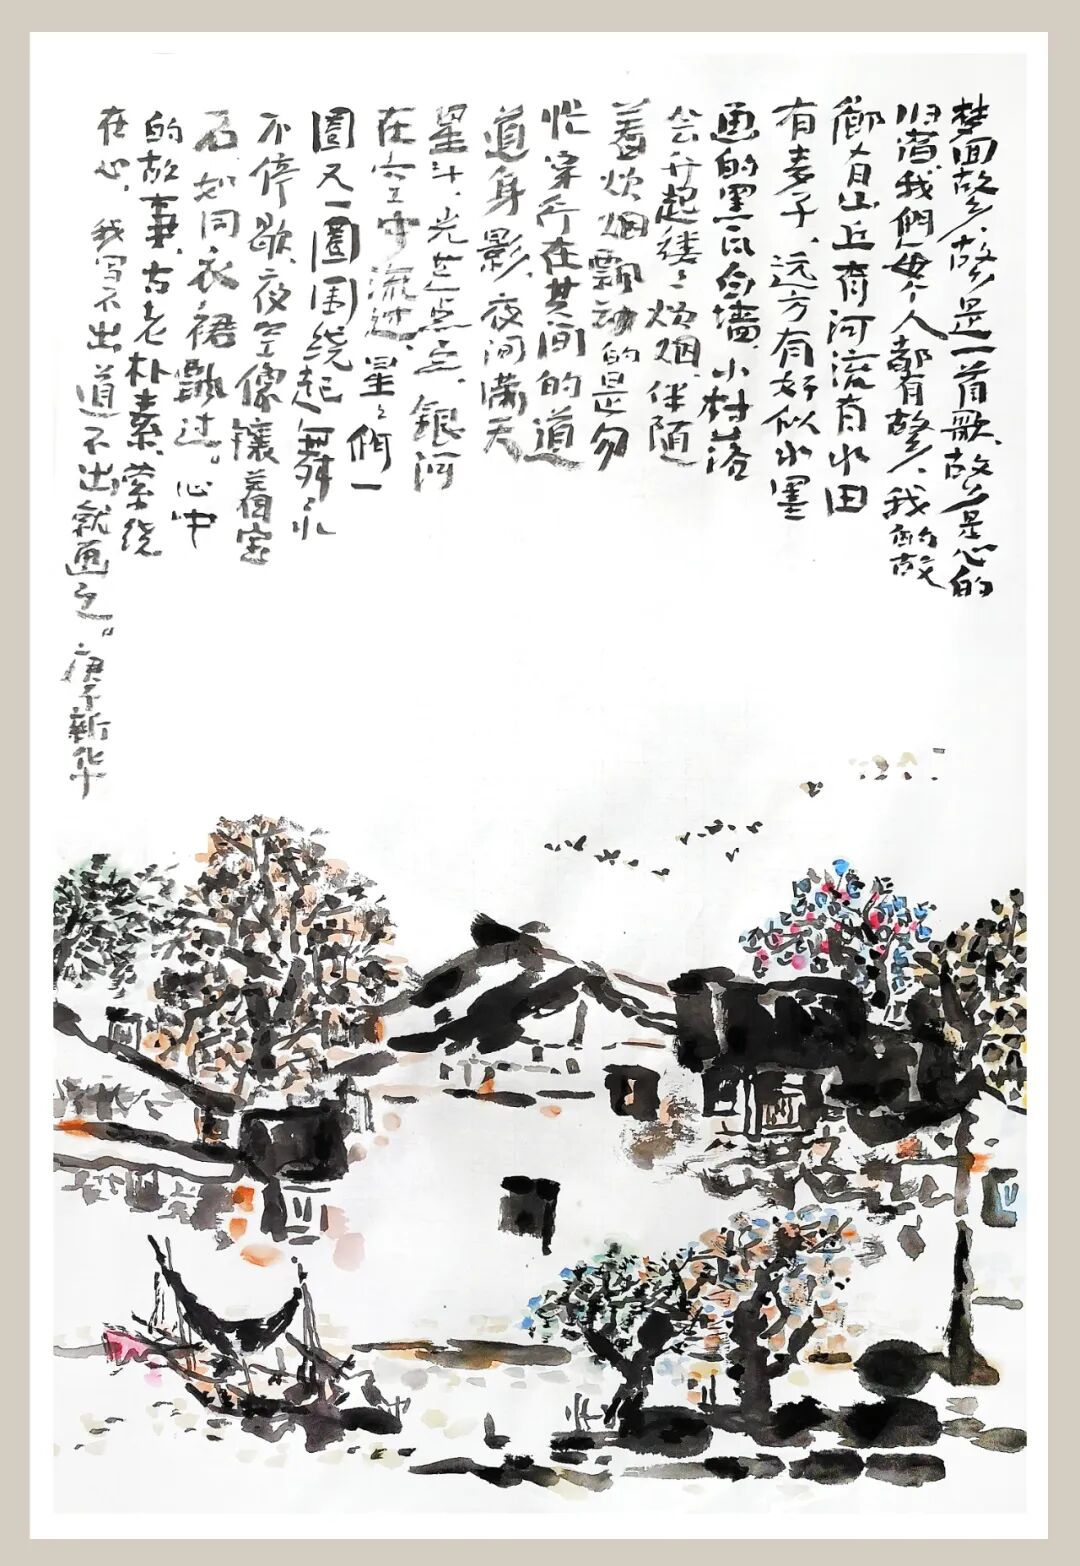 梦回故乡，故乡是一首歌，故乡是心的
归渚，我們每个人都有故乡，我的故
鄉有山丘有河流有水田
有麦子、远方有好似水墨
画的黑瓦白墙，小村落
会升起缕々炊烟，伴随
着炊烟飘动的是匆
忙穿行在其间的道
道身影，夜间满天
星斗，光芒点点，銀河
在空中流过，星々們一
圈又一圈围绕起舞，永
不停歇，夜空像镶着宝
石，如同衣裙飘过。心中
的故事，古老朴素，萦绕
在心，我写不出，道不出就画之。庚子新华